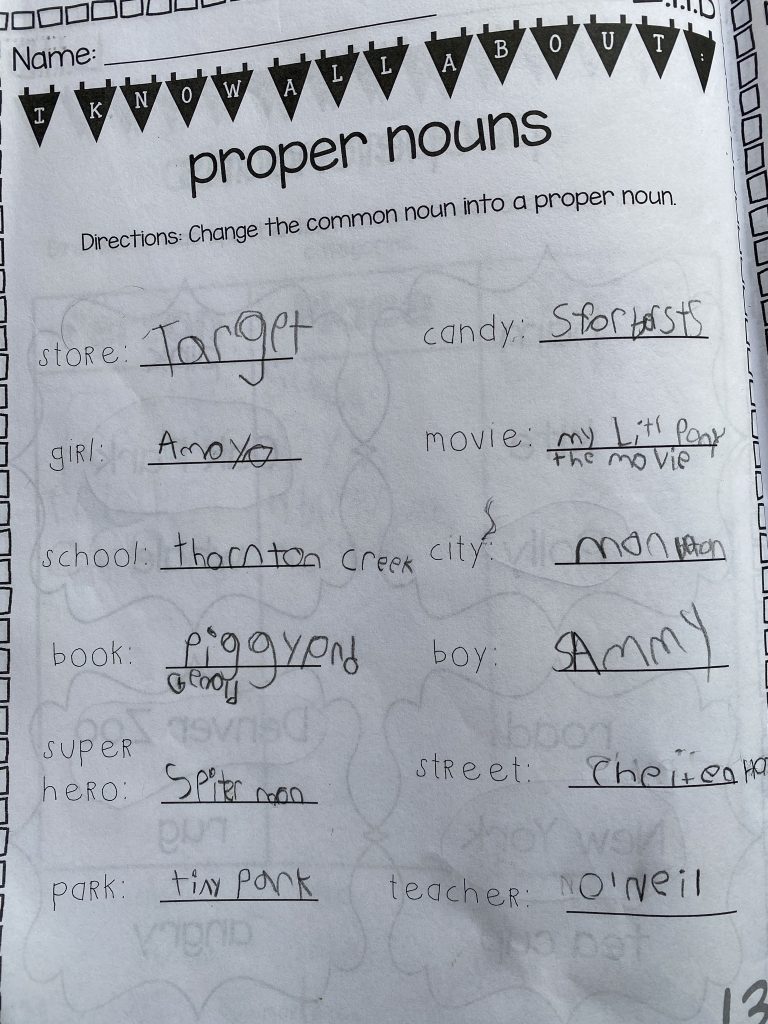 Name:
I KNOW ALL ABOUT:
proper nouns
Directions: Change the common noun into a proper noun.
store: Target
candy: Storbersts
girl: Amoya
movie: my Litl Pony
the movie
school: thornton creek
city: manhaton
book: Piggyand
boy: SAmmy
super
hero: Spiter man
street:
park: tiny park
teacher: O'Neil
13